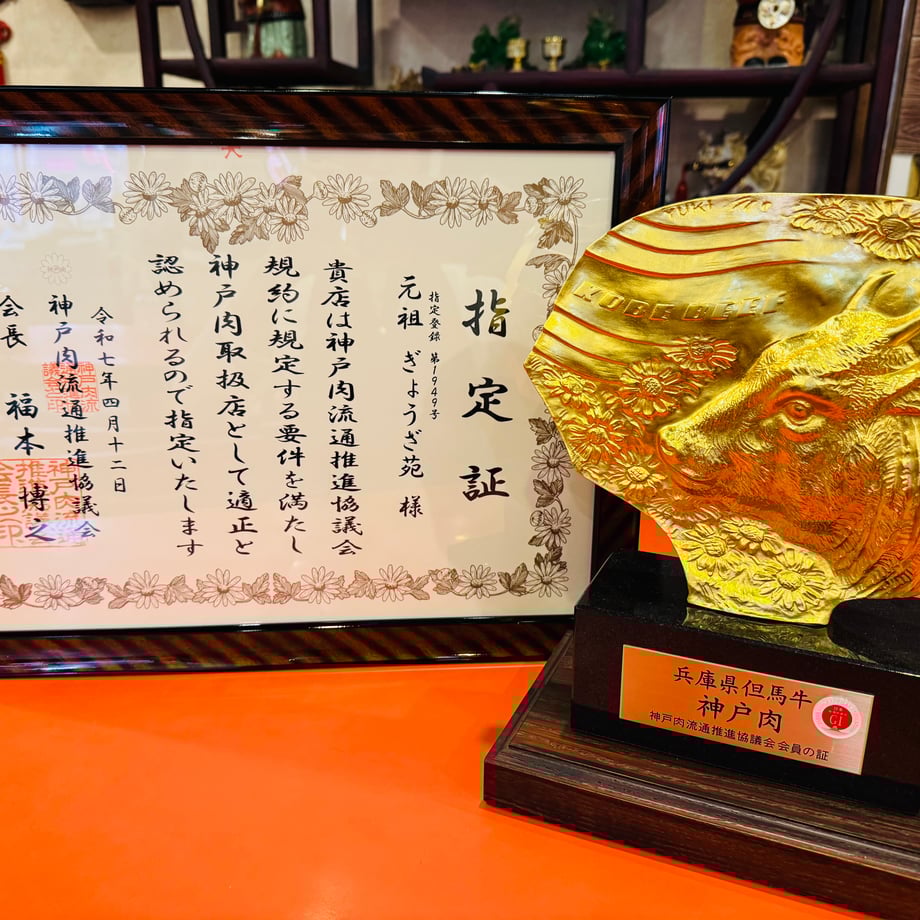 指定証
指定登録 第1949号
元祖 ぎょうざ苑 様
貴店は神戸肉流通推進協議会
規約に規定する要件を満たし
神戸肉取扱店として適正と
認められるので指定いたします
令和七年四月十二日
神戸肉流通推進協議会
会長 福本博之
KOBE BEEF
兵庫県但馬牛
神戸肉
神戸肉流通推進協議会会員の証
GI